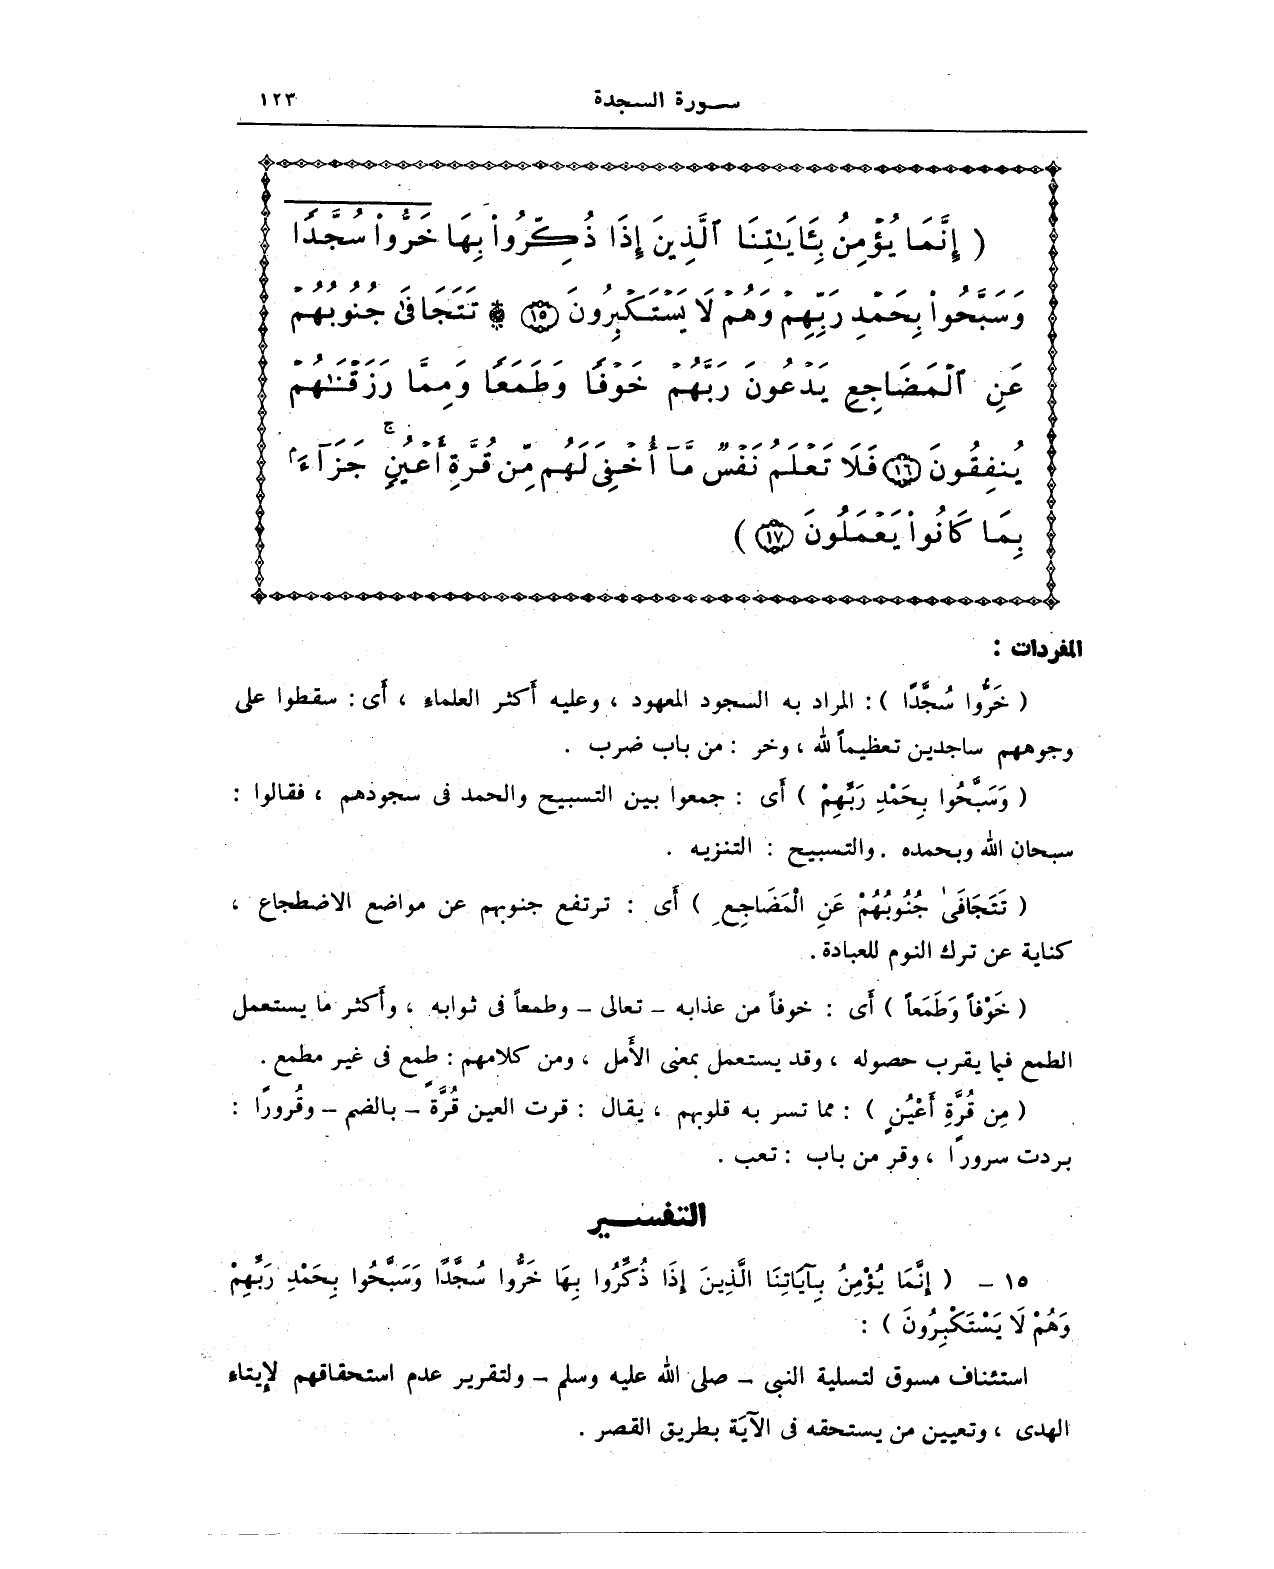 سورة السجدة ١٢٣
( إِنَّمَا يُؤْمِنُ بِـَٔايَـٰتِنَا ٱلَّذِينَ إِذَا ذُكِّرُوا۟ بِهَا خَرُّوا۟ سُجَّدًا
وَسَبَّحُوا۟ بِحَمْدِ رَبِّهِمْ وَهُمْ لَا يَسْتَكْبِرُونَ ۝١٥ ۞ تَتَجَافَىٰ جُنُوبُهُمْ
عَنِ ٱلْمَضَاجِعِ يَدْعُونَ رَبَّهُمْ خَوْفًا وَطَمَعًا وَمِمَّا رَزَقْنَـٰهُمْ
يُنفِقُونَ ۝١٦ فَلَا تَعْلَمُ نَفْسٌ مَّآ أُخْفِىَ لَهُم مِّن قُرَّةِ أَعْيُنٍ ۚ جَزَآءًۢ
بِمَا كَانُوا۟ يَعْمَلُونَ ۝١٧ )
المفردات :
( خَرُّوا سُجَّدًا ) : المراد به السجود المعهود ، وعليه أكثر العلماء ، أى : سقطوا على
وجوههم ساجدين تعظيماً لله ، وخر : من باب ضرب .
( وَسَبَّحُوا بِحَمْدِ رَبِّهِمْ ) أى : جمعوا بين التسبيح والحمد فى سجودهم ، فقالوا :
سبحان الله وبحمده . والتسبيح : التنزيه .
( تَتَجَافَىٰ جُنُوبُهُمْ عَنِ الْمَضَاجِعِ ) أى : ترتفع جنوبهم عن مواضع الاضطجاع ،
كناية عن ترك النوم للعبادة .
( خَوْفاً وَطَمَعاً ) أى : خوفاً من عذابه – تعالى – وطمعاً فى ثوابه ، وأكثر ما يستعمل
الطمع فيما يقرب حصوله ، وقد يستعمل بمعنى الأمل ، ومن كلامهم : طمع فى غير مطمع .
( مِن قُرَّةِ أَعْيُنٍ ) : مما تسر به قلوبهم ، يقال : قرت العين قُرَّةً – بالضم – وقُرورًا :
بردت سرورًا ، وقر من باب : تعب .
التفسير
١٥ – ( إِنَّمَا يُؤْمِنُ بِآيَاتِنَا الَّذِينَ إِذَا ذُكِّرُوا بِهَا خَرُّوا سُجَّدًا وَسَبَّحُوا بِحَمْدِ رَبِّهِمْ
وَهُمْ لَا يَسْتَكْبِرُونَ ) :
استئناف مسوق لتسلية النبى – صلى الله عليه وسلم – ولتقرير عدم استحقاقهم لإيتاء
الهدى ، وتعيين من يستحقه فى الآية بطريق القصر .